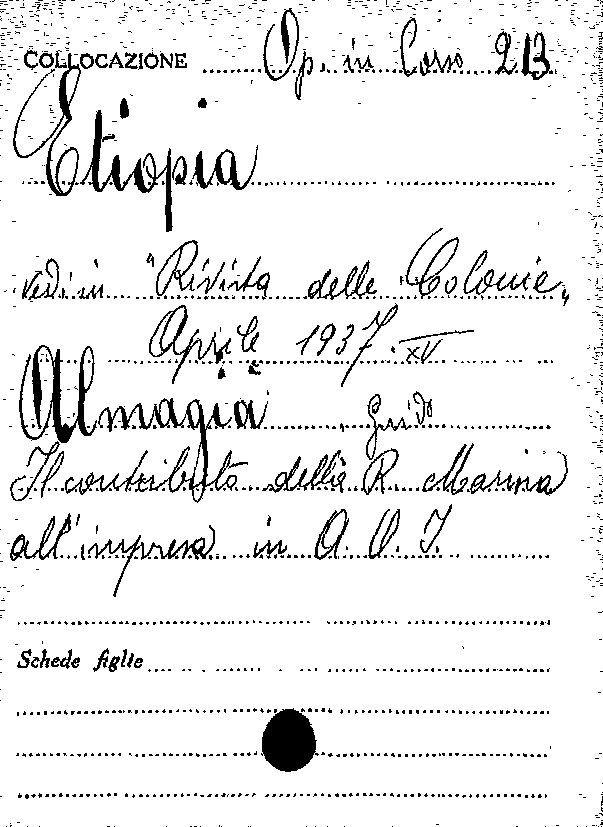 COLLOCAZIONE Op. in Corso 213
Etiopia
vedi in "Rivista delle Colonie"
Aprile 1937. XV
Almagià Guido
Il contributo della R. Marina
all'impresa in A. O. I.
Schede figlie